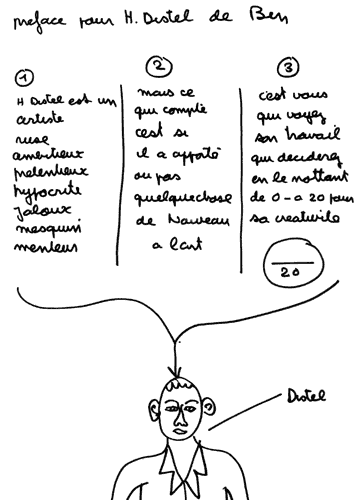 preface pour H. Distel de Ben
1
H Distel est un
artiste
rusé
ambitieux
prétentieux
hypocrite
Jaloux
mesquin
menteur
2
mais ce
qui compte
c'est si
il a apporté
ou pas
quelquechose
de Nouveau
a l'art
3
c'est vous
qui voyez
son travail
qui deciderez
en le nottant
de 0 - a 20 pour
sa creativite
20
Distel